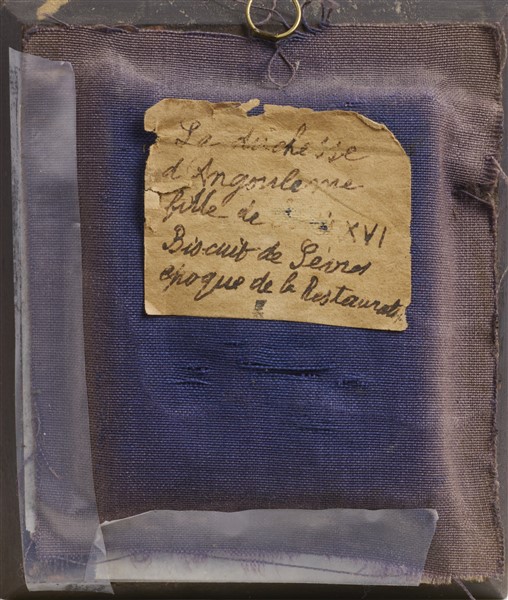 La duchesse
d'Angouleme
fille de XVI
Biscuit de Sèvres
epoque de la Restaurat